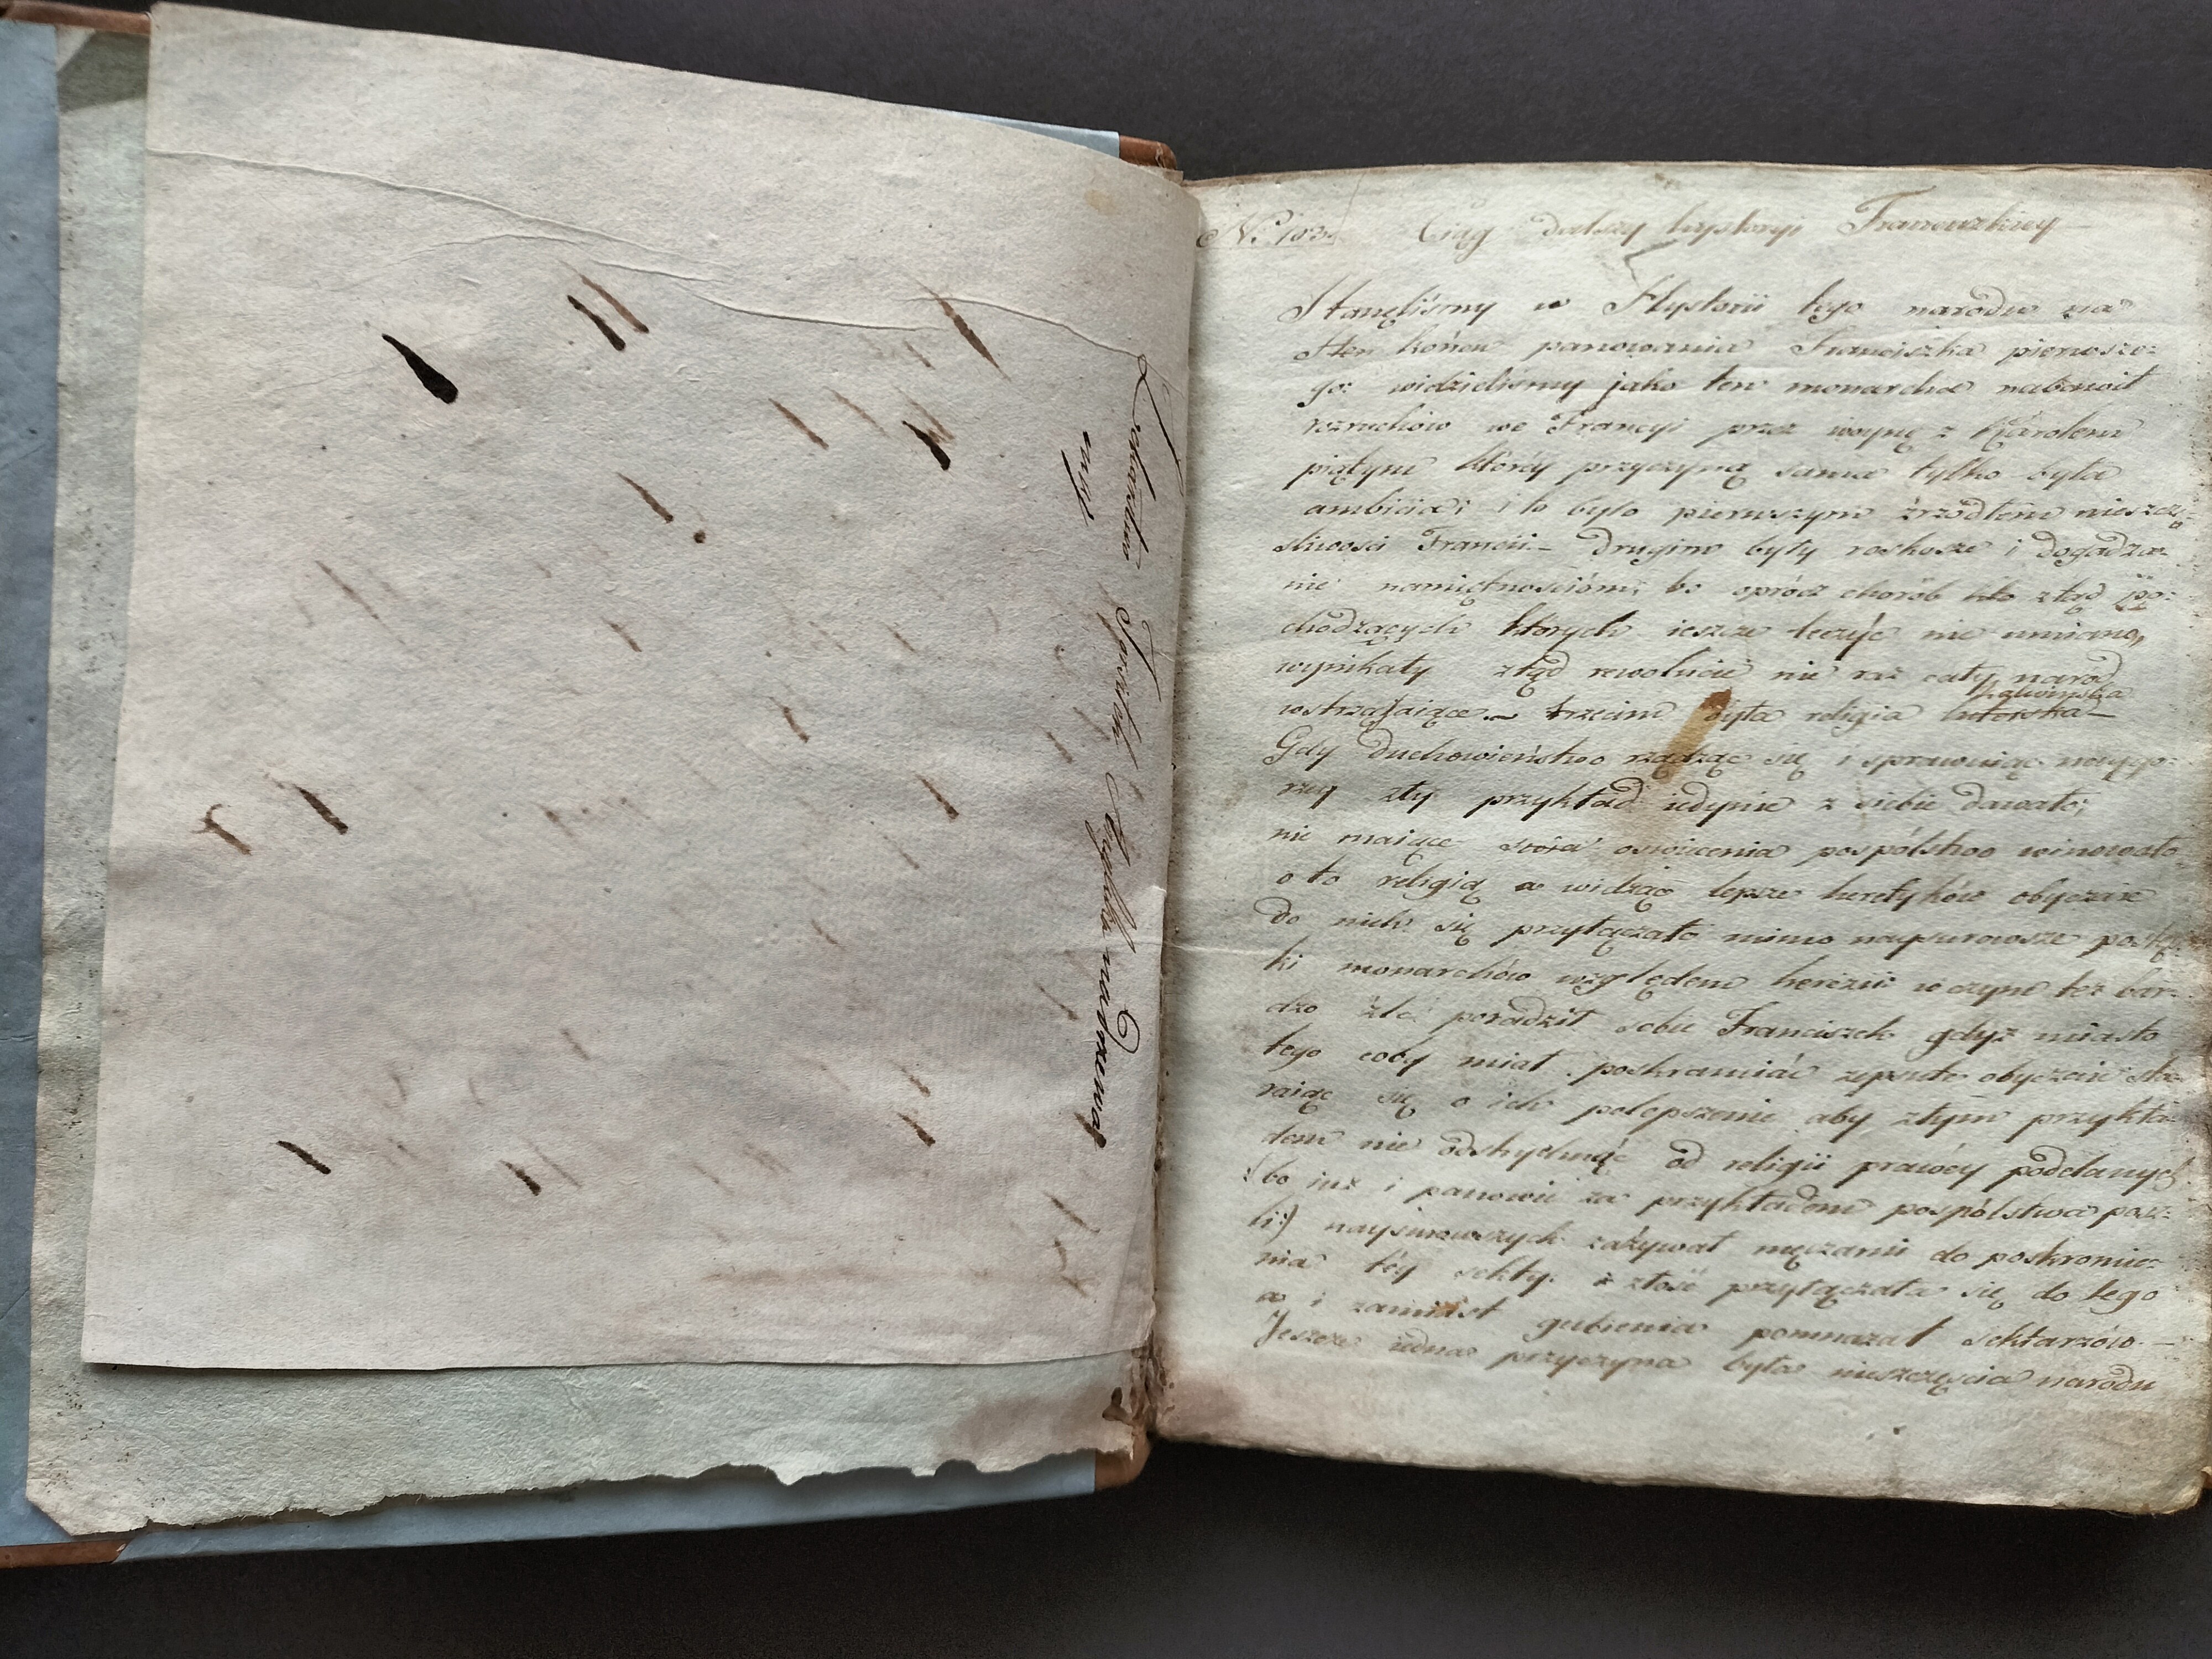 Ciąg dalszy hystoryi Francuzkiey
Stanęliśmy w Hystorii tego narodu na
tem końcu panowania Franciszka pierwsze:
go: widzieliśmy jako ten monarcha nabawił
rozruchów we Francyi przez woynę z Karolem
piątym którey przyczyną sama tylko była
ambicia; i to było pierwszym źrzódłem nieszczę
śliwości Francii – Drugim były roskosze i dogadza:
nie namiętnościóm; bo oprócz chorób ztąd po:
chodzących których ieszcze leczyć nie umiano,
wynikały ztąd rewolucie nie raz cały naród
wstrząsaiące – trzecim była religia luterska – kalwińska
Gdy duchowieństwo rządząc się i sprawuiąc naygo:
rzey zły przykład iedynie z siebie dawało;
nie maiące oświecenia pospólstwo winowało
o to religią a widząc lepsze heretyków obyczaie
do nich się przyłączało mimo naysurowsze postęp
ki monarchów względem herezii w czym też bar:
dzo źle poradził sobie Franciszek gdyż miasto
tego coby miał poskramiać zepsute obyczaie sta
raiąc się o ich polepszenie aby złym przykła
dem nie odstrychnąć od religii prawey poddanych
(bo iuż i panowie za przykładem pospólstwa posz:
li:) naysurowszych zażywał męczarni do poskromie:
nia téy sekty: złość przyłączała się do tego
a i zamiast gubienia pomnażał sektarzów –
Jeszcze iedna przyczyna była nieszczęścia narodu